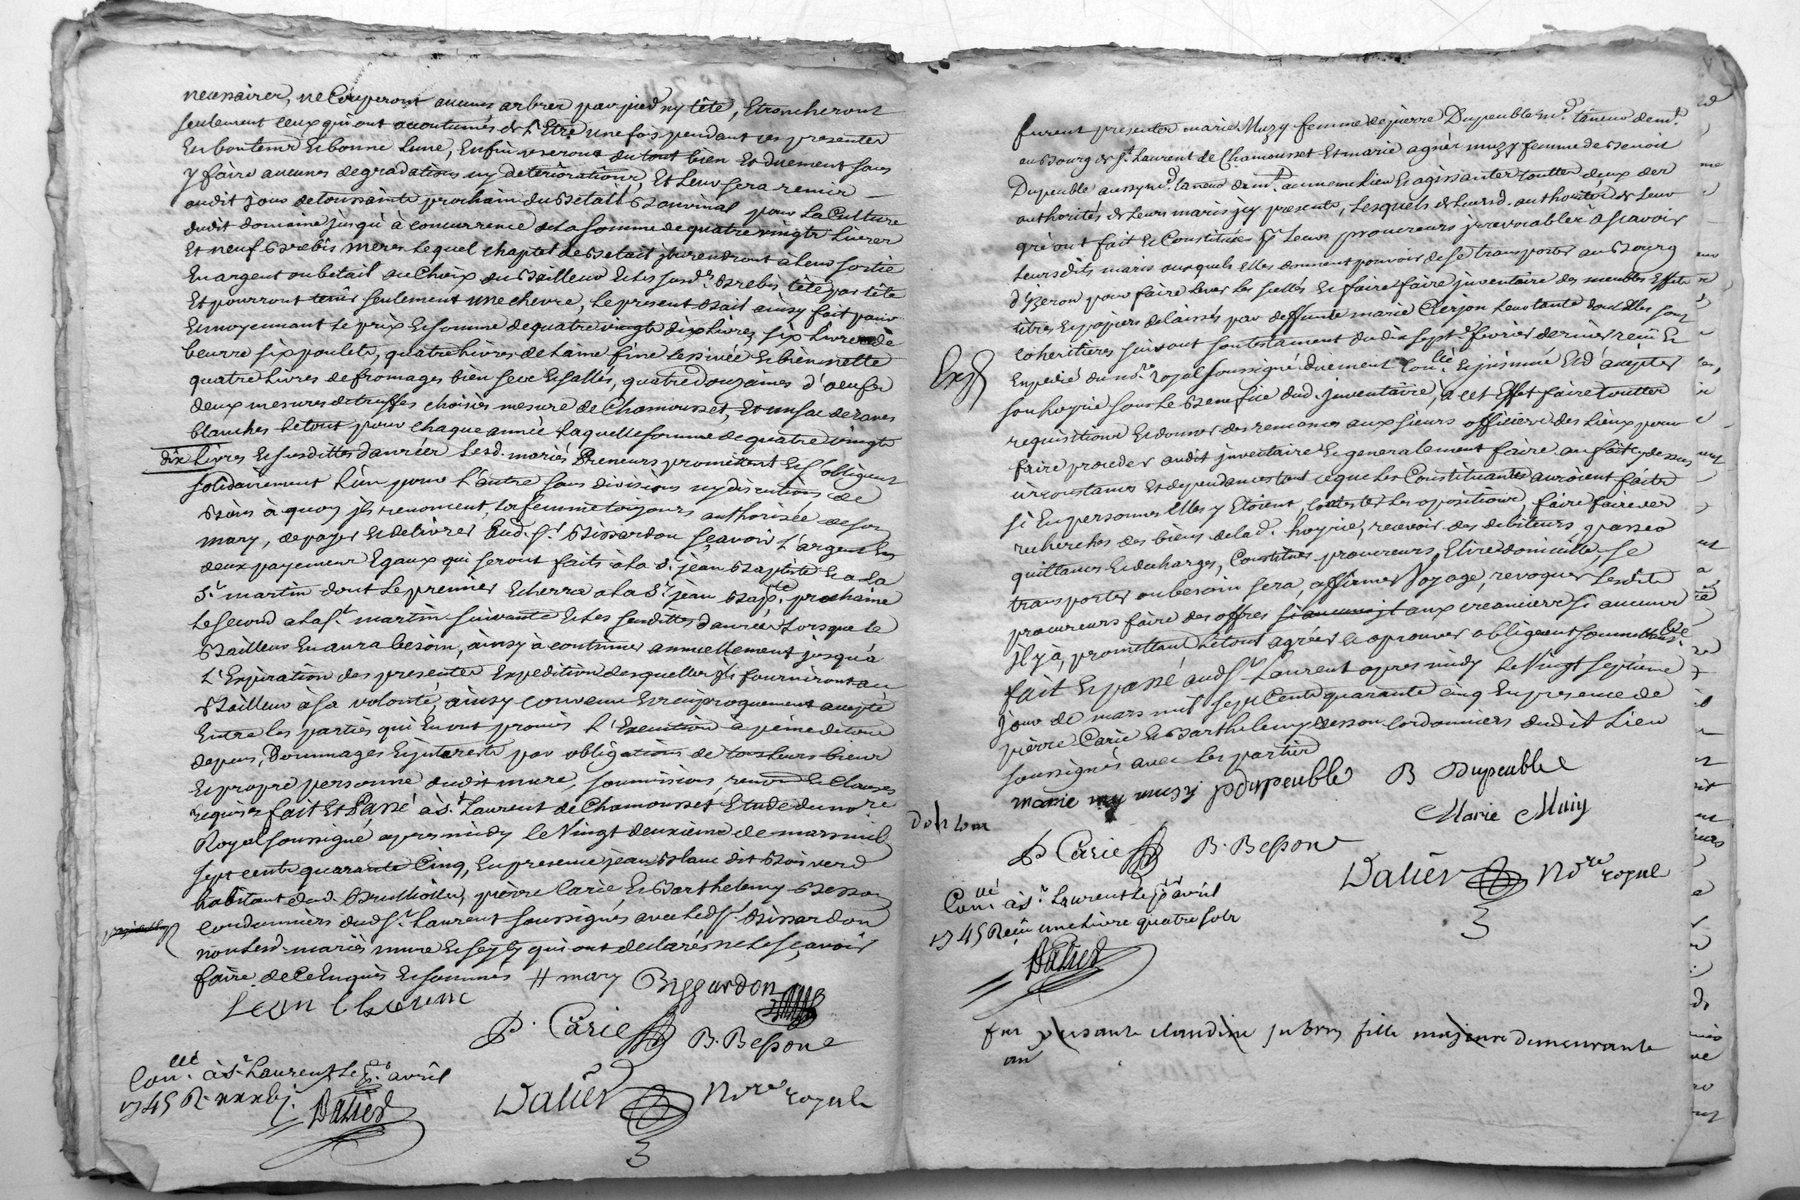 necessaires, ne Couperont aucuns arbres par pied ny tête, Etroncheront
seulement ceux qui ont accoutumés de L'Etre une fois pendant ces presentes
En bon tems Et bonne Lune, Enfin useront du tout bien Et duement sans
y faire aucunes degradations ny deteriorations, Et Leur sera remis
audit jour de toussaints prochain du Betail pour La Culture
dudit domaine jusqu'à concurrence de La somme de quatre vingts Livres
Et neuf Brebis meres Lequel chaptel de Betail ils rendront à Leur sortie
En argent ou bétail au Choix du Bailleur Et Les susd.es Brebis tête par tête
Et pourront tenir seulement une chevre, Le present Bail ainsy fait pour
Et moyennant Le prix Et somme de quatre vingts dix Livres, six Livres de
beurre six poulets, quatre Livres de Laine fine Lessivée Et bien nette
quatre Livres de fromages bien secs Et sallés, quatre Douzaines d'oeufs
deux mesures de truffes choisies mesure de Chamousset, Et un sac de raves
blanches Le tout pour chaque année Laquelle somme de quatre vingts
dix Livres Et susdittes danrées Lesd. mariés Preneurs promettent Et s'obligent
solidairement L'un pour L'autre sans division ny discution de
Biens à quoy ils renoncent, La femme toujours authorisée de son
mary, de payer Et delivrer aud. Sr. Bissardon sçavoir L'argent En
deux payements Egaux qui seront faits à la St. jean Baptiste Et a La
St. martin dont Le premier Echerra a la St. jean Bapte. prochaine
Le second a la St. martin suivante Et Les susdittes danrées Lorsque Le
Bailleur En aura besoin, ainsy à continuer annuellement jusqu'à
L'Expiration des presentes Expedition desquelles ils fourniront au
Bailleur à sa volonté, ainsy convenu Et reciproquement accepté
Entre Les parties qui En ont promis L'Execution à peine de tous
depens, Dommages Et interests par obligations de tous Leurs biens
Et propre personne dudit mure, soumissions, renon. Et Clauses
requises fait Et Passé à St. Laurent de Chamousset Etude du nore.
Royal soussigné apres midy Le Vingt deuxieme de mars mil
sept cents quarante Cinq, En presence jean Blanc dit Boisverd
habitant dud. Brullioles, pierre Carie Et Barthelemy Besson
Cordonniers dud. St. Laurent soussignés avec Led. Sr. Bissardon
non Lesd. mariés mure Et qui ont declarés ne Le sçavoir
faire de Ce Enquis Et sommés # mary
Bissardon
P. Carie B. Besson
Dalier Nore royal
Conllé à St. Laurent Le 1er avril
1745 R. Dalier
furent presentes marie Muzy femme de pierre Dupeuble md. taneur demt.
au Bourg de St. Laurent de Chamousset Et marie agnès muzy femme de Benoit
Dupeuble aussy md. taneur demt. au meme Lieu Et agissantes touttes deux des
authorités de Leurs maris icy presents, Lesquels de Leursd. authorités de Leur
gré ont fait Et Constitués pr. Leurs procureurs irrevocables a sçavoir
Leursdits maris auxquels elles donnent pouvoir de se transporter au Bourg
d'yzeron pour faire lever Les scellés Et faire faire inventaire des meubles Effets
titres Et papiers delaissés par deffunte marie Clerjon Leur tante dont Elles sont
coheritieres suivant son testament du dix sept fevrier dernier reçu Et
Expedié du nore. royal soussigné duement Conllé Et insinué Et d'accepter
son hoyrie sous Le Benefice dud. inventaire, a cet Effet faire touttes
requisitions Et donner des remontrances aux sieurs officiers des Lieux pour
faire proceder audit inventaire Et generalement faire au fait cy dessus
circonstances Et dependances tout ce que Les Constituantes auroient faites
si En personnes Elles y Etoient, Contester Les oppositions, faire faire des
recherches des biens de lad. hoyrie, recevoir des debiteurs, passer
quittances Et decharges, Constituer procureurs, Elire domicille, se
transporter ou besoin sera, affirmer Voyage, revoquer Lesdits
procureurs faire des offres aux creanciers si aucuns
il y a, promettant Le tout agréer Et aprouver obligeant
fait Et passé aud. St. Laurent apres midy Le Vingt septieme
jour de mars mil sept Cents quarante cinq En presence de
pierre Carie Et Barthelemy Besson Cordonniers dudit Lieu
soussignés avec Les parties
marie muzy pDupeuble B Dupeuble
Marie Muzy
P. Carie B. Besson
Dalier Nore royal
Conllé à St. Laurent Le 1er avril
1745 Reçu une Livre quatre sols
Dalier
fut presante claudine fille majeure demeurante
au